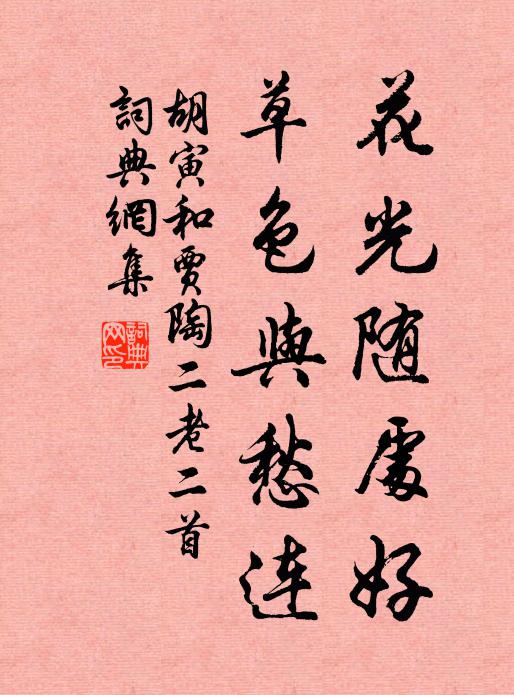 花光随處好
草色與愁連
胡寅和賈陶二老二首
詞典網集
詞典網印